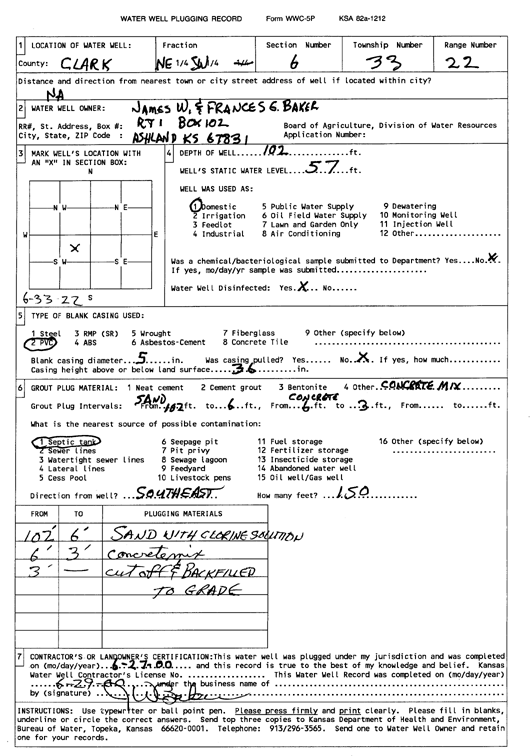 WATER WELL PLUGGING RECORD Form WWC-5P KSA 82a-1212
1 LOCATION OF WATER WELL: Fraction Section Number Township Number Range Number
County: CLARK NE 1/4 SW 1/4 1/4 6 33 22
Distance and direction from nearest town or city street address of well if located within city?
NA
2 WATER WELL OWNER: JAMES W. & FRANCES G. BAKER
RR#, St. Address, Box #: RT 1 BOX 102 Board of Agriculture, Division of Water Resources
City, State, ZIP Code : ASHLAND KS 67831 Application Number:
3 MARK WELL'S LOCATION WITH AN "X" IN SECTION BOX:
N
N W N E
W E
X
S W S E
S
6-33-22
4 DEPTH OF WELL.....102..........ft.
WELL'S STATIC WATER LEVEL....57....ft.
WELL WAS USED AS:
1 Domestic 5 Public Water Supply 9 Dewatering
2 Irrigation 6 Oil Field Water Supply 10 Monitoring Well
3 Feedlot 7 Lawn and Garden Only 11 Injection Well
4 Industrial 8 Air Conditioning 12 Other................
Was a chemical/bacteriological sample submitted to Department? Yes....No.X.
If yes, mo/day/yr sample was submitted.....................
Water Well Disinfected: Yes.X... No......
5 TYPE OF BLANK CASING USED:
1 Steel 3 RMP (SR) 5 Wrought 7 Fiberglass 9 Other (specify below)
2 PVC 4 ABS 6 Asbestos-Cement 8 Concrete Tile ..........................
Blank casing diameter..5......in. Was casing pulled? Yes...... No..X.. If yes, how much............
Casing height above or below land surface.....36..........in.
6 GROUT PLUG MATERIAL: 1 Neat cement 2 Cement grout 3 Bentonite 4 Other.CONCRETE MIX.......
SAND CONCRETE
Grout Plug Intervals: From.102.ft. to..6..ft., From...6.ft. to ..3.ft., From...... to......ft.
What is the nearest source of possible contamination:
1 Septic tank 6 Seepage pit 11 Fuel storage 16 Other (specify below)
2 Sewer lines 7 Pit privy 12 Fertilizer storage ....................
3 Watertight sewer lines 8 Sewage lagoon 13 Insecticide storage
4 Lateral lines 9 Feedyard 14 Abandoned water well
5 Cess Pool 10 Livestock pens 15 Oil well/Gas well
Direction from well? ...SOUTHEAST.. How many feet? ...150...........
FROM TO PLUGGING MATERIALS
102' 6' SAND WITH CLORINE SOLUTION
6' 3' Concrete mix
3' — CUT OFF & BACKFILLED
TO GRADE
7 CONTRACTOR'S OR LANDOWNER'S CERTIFICATION: This water well was plugged under my jurisdiction and was completed
on (mo/day/year)..6-27-00..... and this record is true to the best of my knowledge and belief. Kansas
Water Well Contractor's License No. .................. This Water Well Record was completed on (mo/day/year)
.....6-29-00.....under the business name of .............................................
by (signature)
INSTRUCTIONS: Use typewriter or ball point pen. Please press firmly and print clearly. Please fill in blanks,
underline or circle the correct answers. Send top three copies to Kansas Department of Health and Environment,
Bureau of Water, Topeka, Kansas 66620-0001. Telephone: 913/296-3565. Send one to Water Well Owner and retain
one for your records.